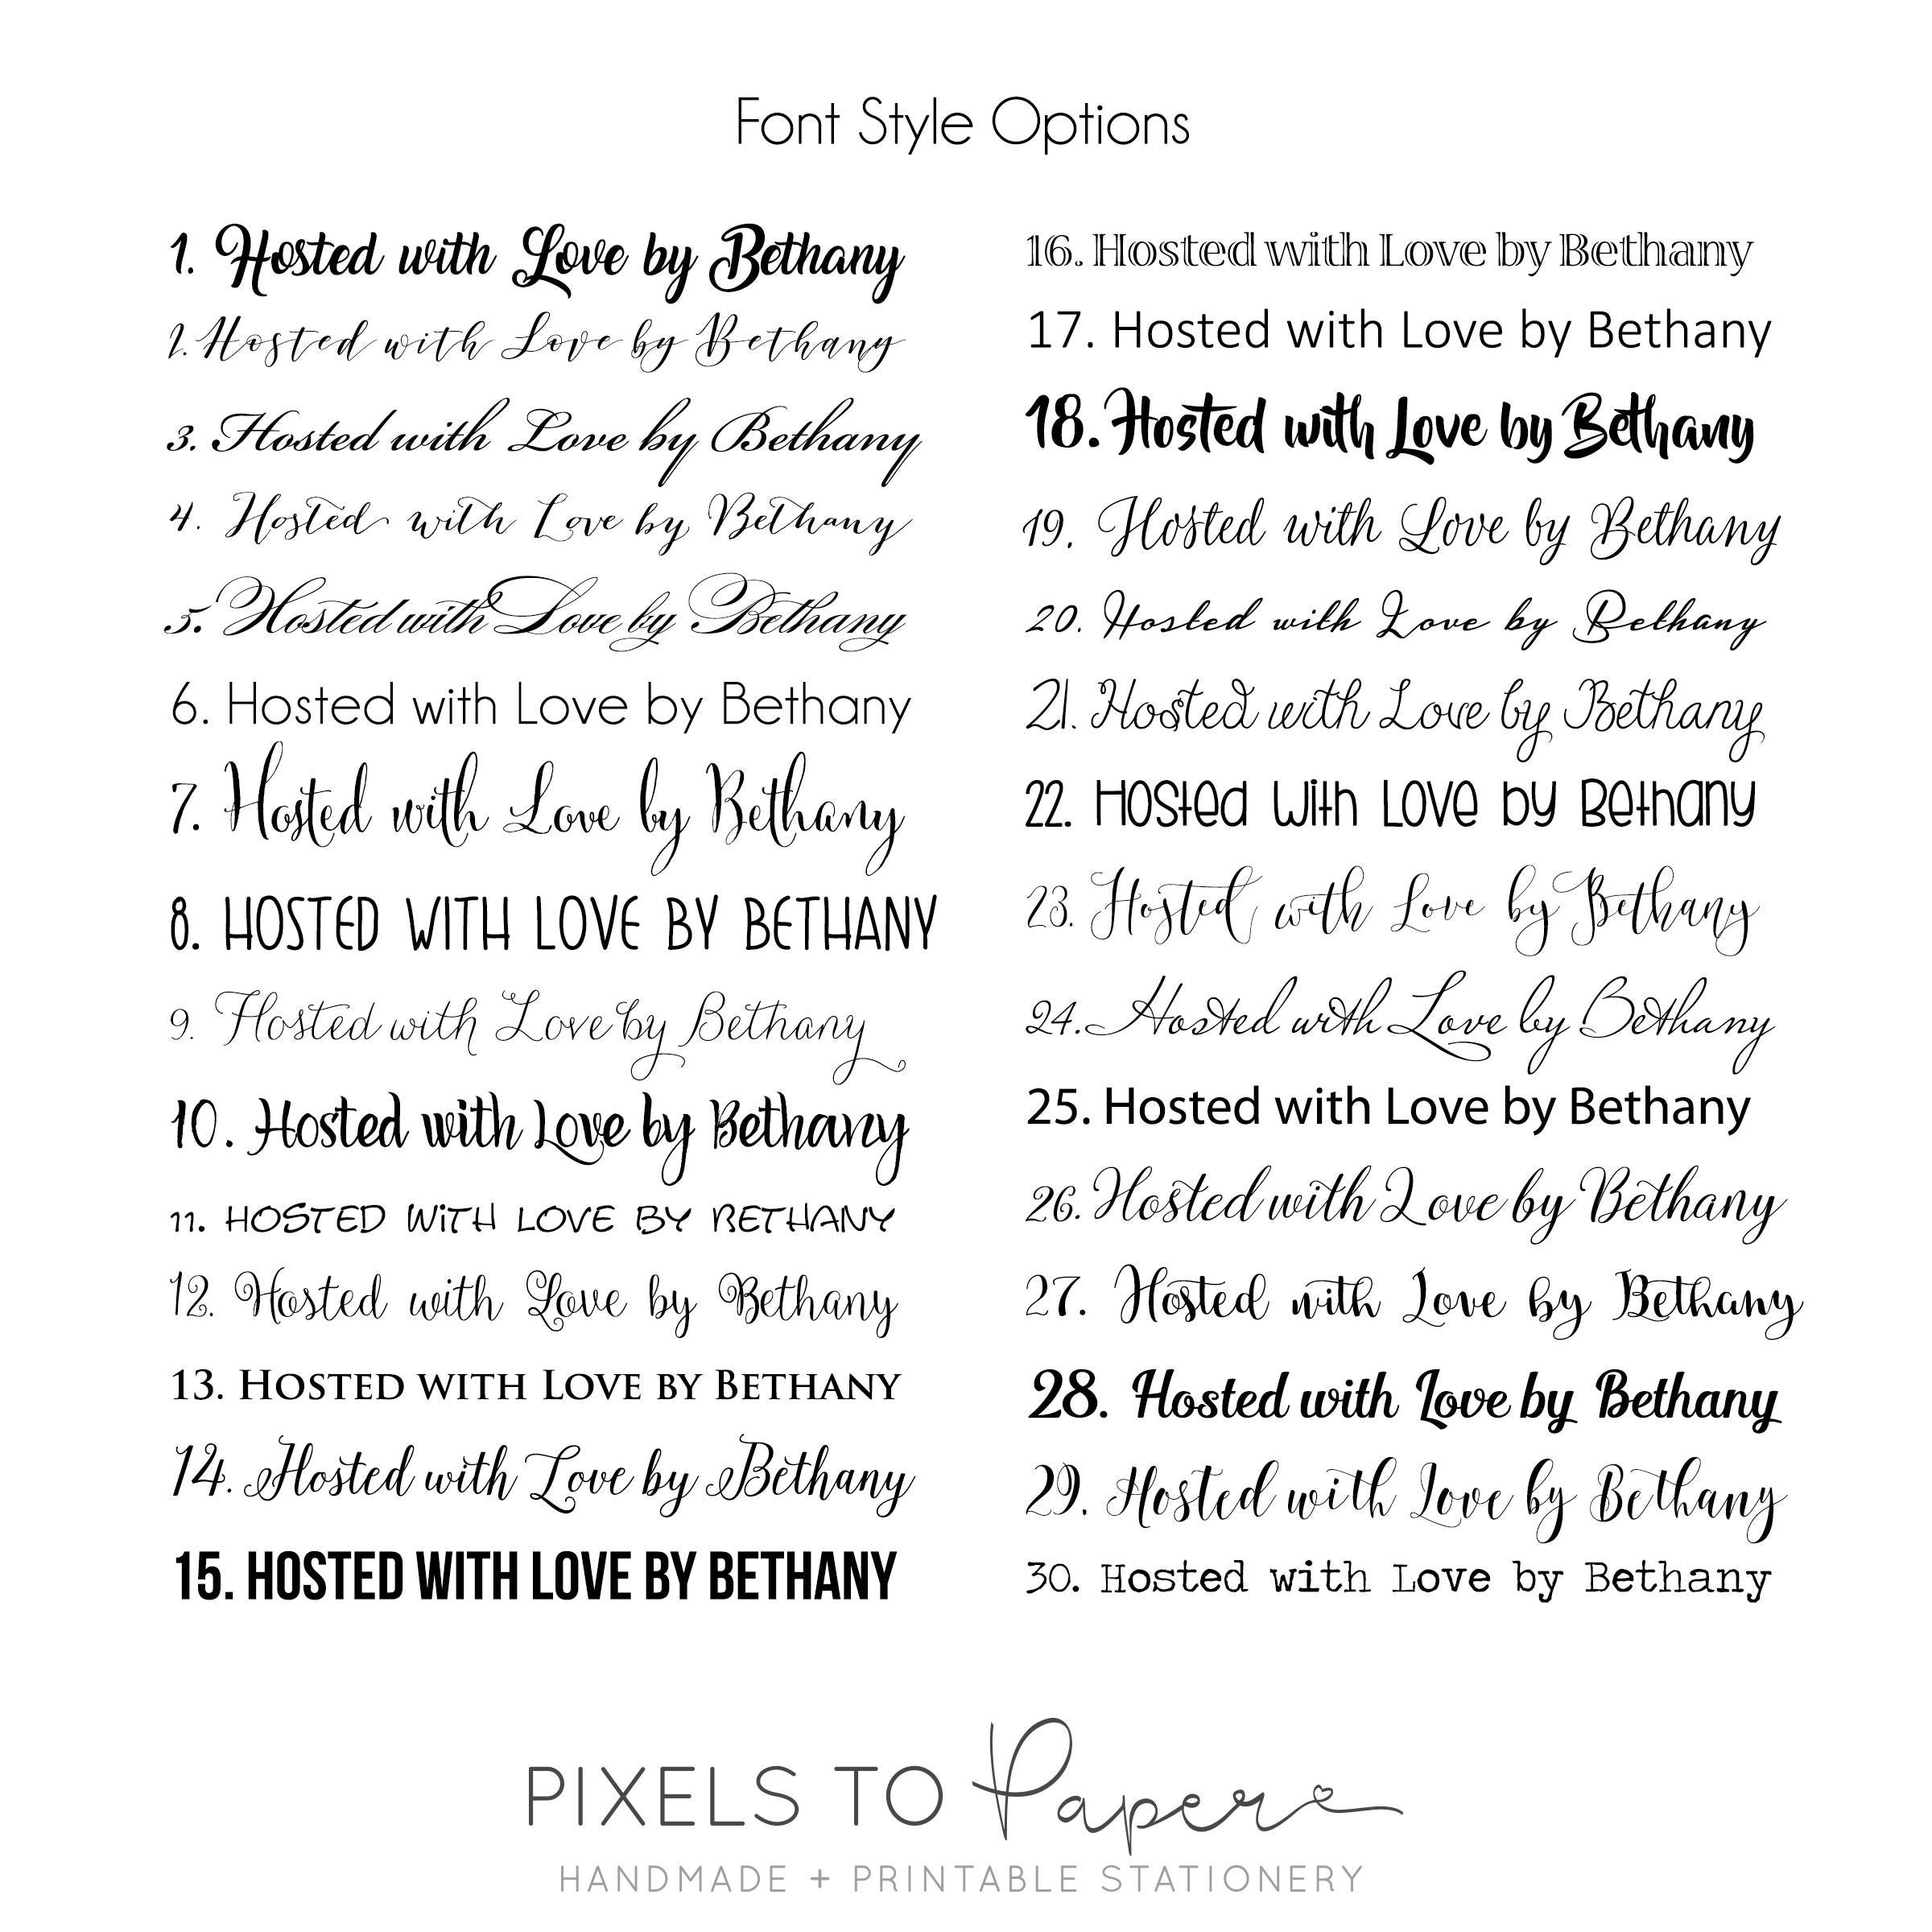 Font Style Options
1. Hosted with Love by Bethany
2. Hosted with Love by Bethany
3. Hosted with Love by Bethany
4. Hosted with Love by Bethany
5. Hosted with Love by Bethany
6. Hosted with Love by Bethany
7. Hosted with Love by Bethany
8. HOSTED WITH LOVE BY BETHANY
9. Hosted with Love by Bethany
10. Hosted with Love by Bethany
11. HOSTED WiTH LOVE BY BETHANY
12. Hosted with Love by Bethany
13. HOSTED WITH LOVE BY BETHANY
14. Hosted with Love by Bethany
15. HOSTED WITH LOVE BY BETHANY
16. Hosted with Love by Bethany
17. Hosted with Love by Bethany
18. Hosted with Love by Bethany
19. Hosted with Love by Bethany
20. Hosted with Love by Bethany
21. Hosted with Love by Bethany
22. Hosted with Love by Bethany
23. Hosted with Love by Bethany
24. Hosted with Love by Bethany
25. Hosted with Love by Bethany
26. Hosted with Love by Bethany
27. Hosted with Love by Bethany
28. Hosted with Love by Bethany
29. Hosted with Love by Bethany
30. Hosted with Love by Bethany
PIXELS TO Paper
HANDMADE + PRINTABLE STATIONERY